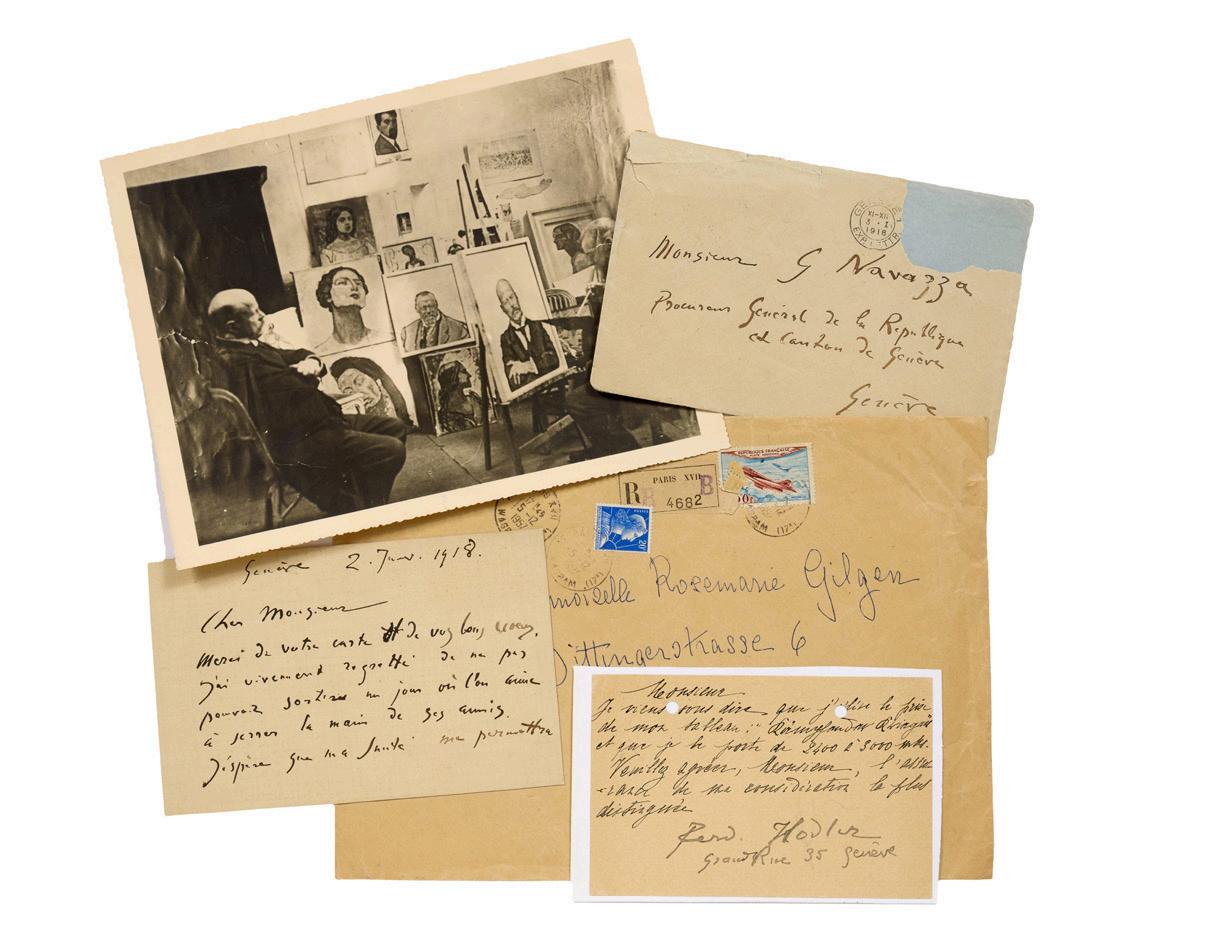 XI-XII
3 · I
1918
Monsieur G Navazza
Procureur Général de la République
et Canton de Genève
Genève
REPUBLIQUE FRANÇAISE
R PARIS XVII B
4682
20F
Rosemarie Gilgen
ittingerstrasse 6
Genève 2. Janv. 1918.
Cher Monsieur
Merci de votre carte et de vos bons voeux.
j'ai vivement regretté de ne pas
pouvoir sortir un jour où l'on aime
à serrer la main de ses amis.
J'éspère que ma Santé me permettra
Monsieur
Je viens vous dire, que j'élève le prix
de mon tableau:
et que je le porte de 2400 à 3000 mks.
Veuillez agréer, Monsieur, l'assu-
rance de ma considération la plus
distinguée
Ferd. Hodler
Grand Rue 35 Genève